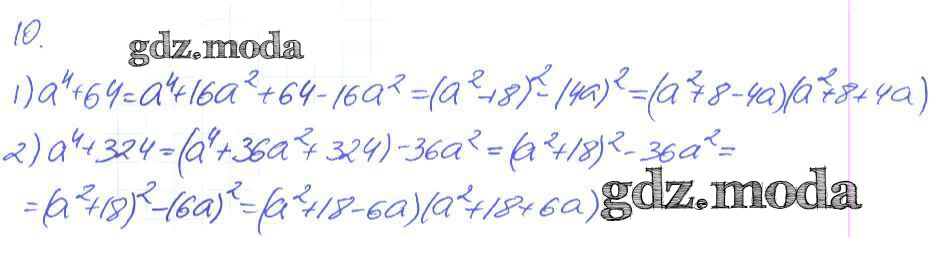 10.
gdz.moda
1) a⁴+64=a⁴+16a²+64-16a²=(a²+8)²-(4a)²=(a²+8-4a)(a²+8+4a)
2) a⁴+324=(a⁴+36a²+324)-36a²=(a²+18)²-36a²=
=(a²+18)²-(6a)²=(a²+18-6a)(a²+18+6a)
gdz.moda